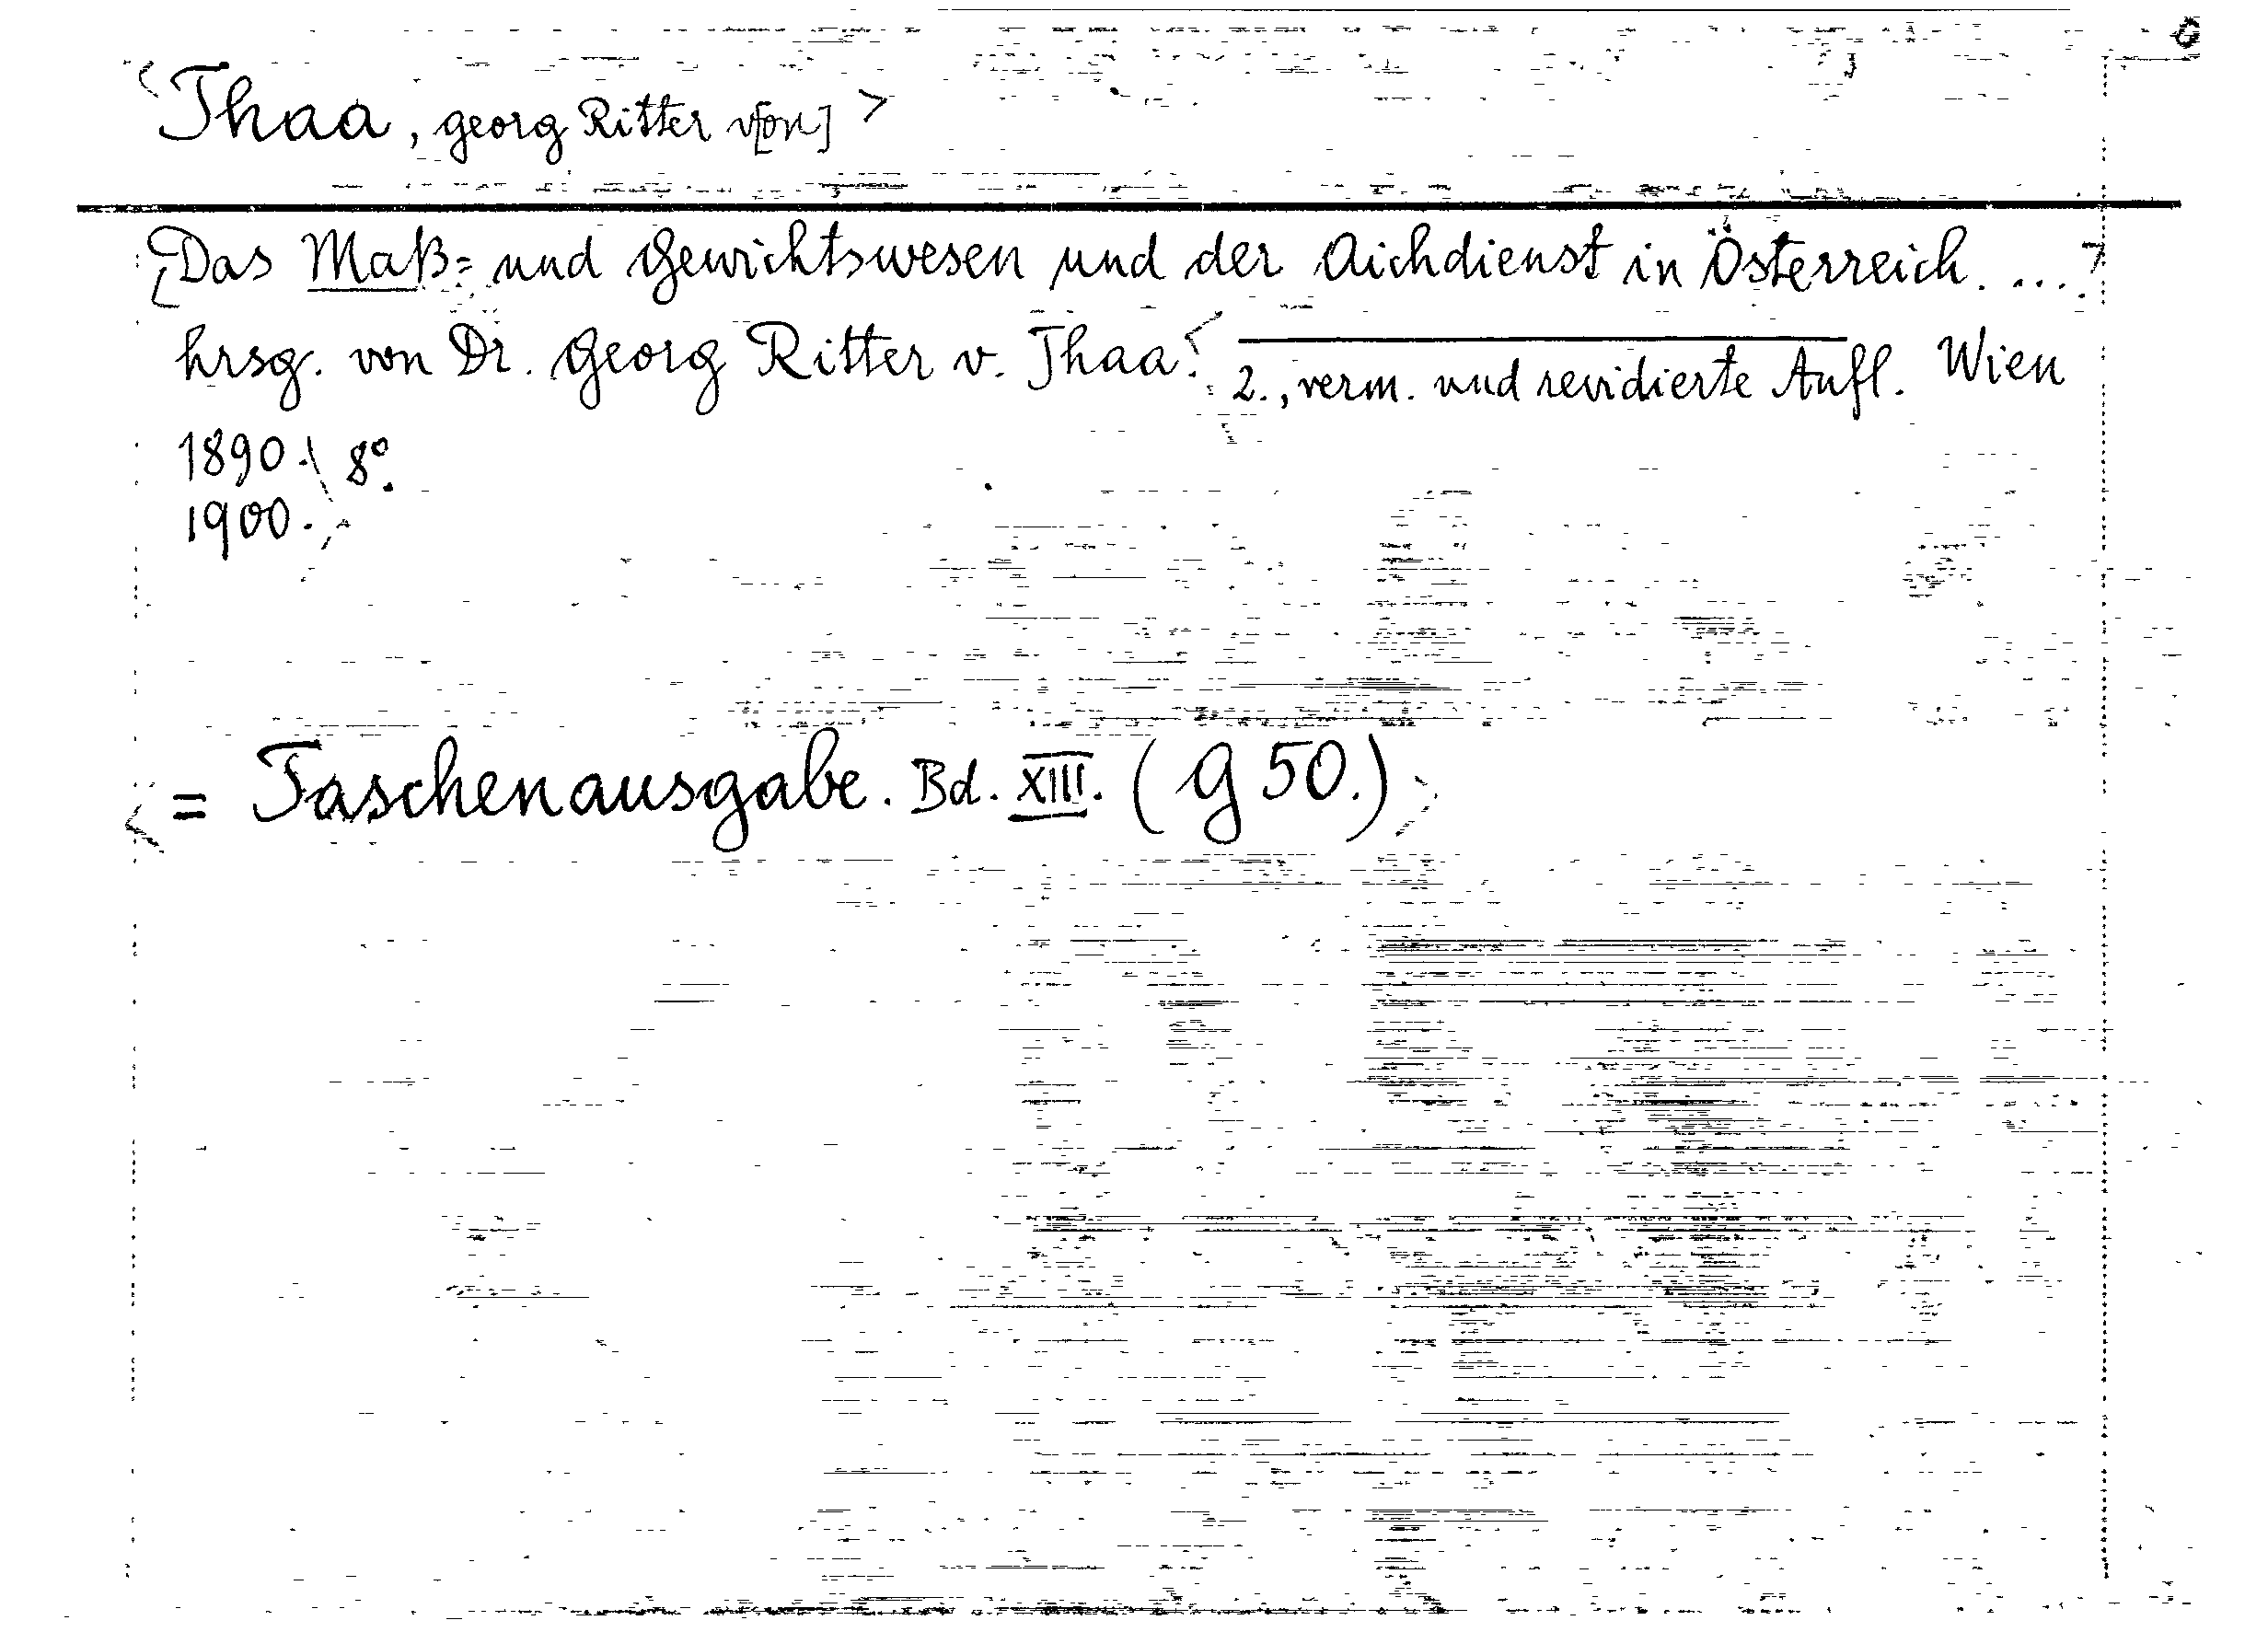 <Thaa, Georg Ritter v[on]>
[Das Maß= und Gewichtswesen und der Aichdienst in Österreich. ....
hrsg. von Dr. Georg Ritter v. Thaa. < 2., verm. und revidierte Aufl. Wien
1890. 8°.
1900.
< = Taschenausgabe. Bd. XIII. (G 50.) >